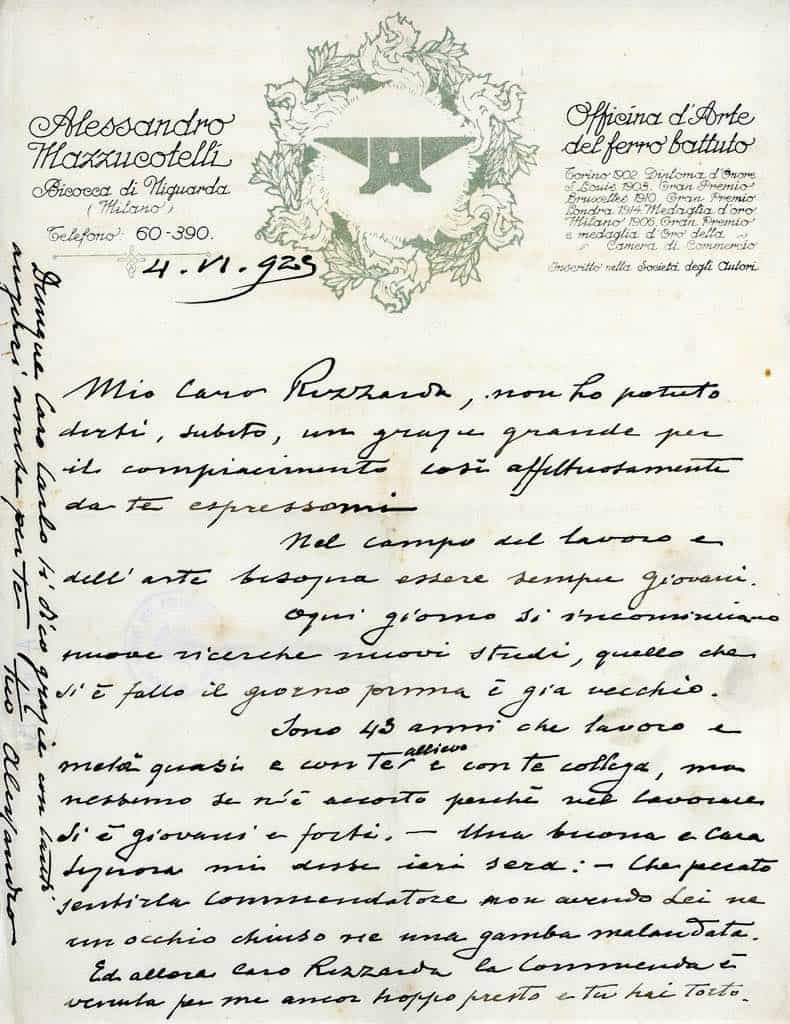 Alessandro
Mazzucotelli
Bicocca di Niguarda
(Milano)
Telefono: 60-390.
Officina d'Arte
del ferro battuto
Torino 1902. Diploma d'Onore
S. Louis 1903. Gran Premio
Bruxelles 1910. Gran Premio
Londra 1914. Medaglia d'oro
Milano 1906. Gran Premio
e medaglia d'Oro della
Camera di Commercio
Inscritto nella Società degli Autori
4. VI. 925
Mio Caro Rizzarda, non ho potuto
dirti, subito, un grazie grande per
il compiacimento così affettuosamente
da te espressomi
Nel campo del lavoro e
dell'arte bisogna essere sempre giovani.
Ogni giorno si incominciano
nuove ricerche nuovi studi, quello che
si è fatto il giorno prima è già vecchio.
Sono 43 anni che lavoro e
metà quasi e con te allievo e con te collega, ma
nessuno se n'è accorto perchè nel lavorare
si è giovani e forti. — Una buona e cara
Signora mi disse ieri sera: — Che peccato
sentirla Commendatore non avendo Lei ne
un occhio chiuso ne una gamba malandata.
Ed allora Caro Rizzarda la Commenda è
venuta per me ancor troppo presto e tu hai torto.
Dunque Caro Carlo ti dico grazie con tanti
auguri anche per te
tuo Alessandro